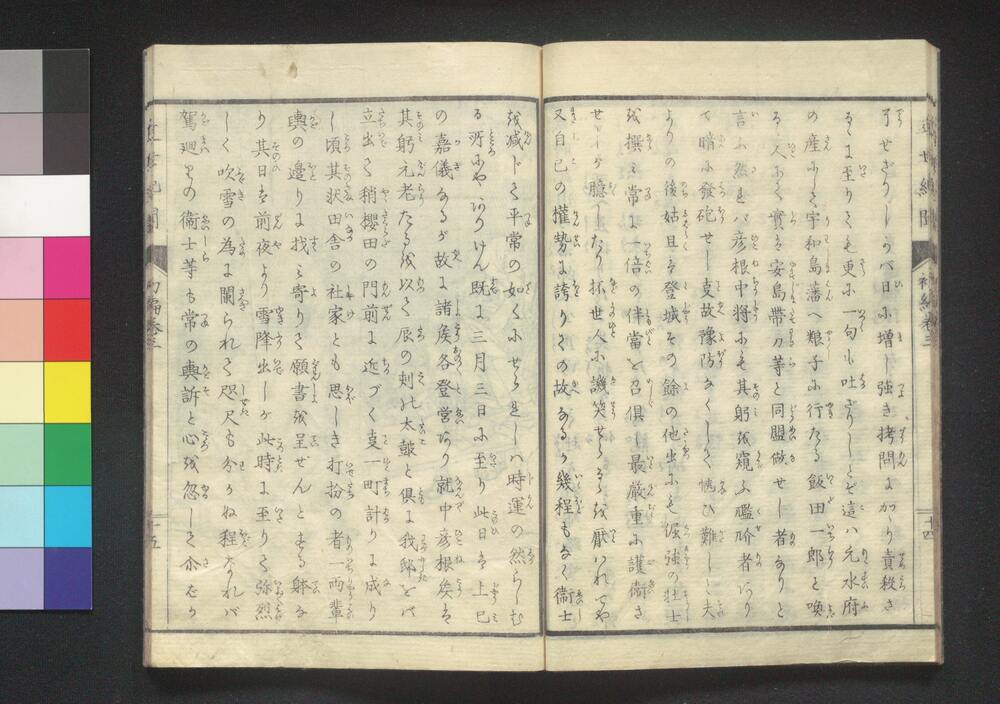 近世紀聞 初編巻三 十四
了せざりしかバ日に増し強き拷問にかゝり責殺さ
るゝに至りても更に一句も吐ざりしとぞ這ハ元水府
の産にして宇和島藩へ粮子に行たる飯田一郎と喚
るゝ人にて實は安島帯刀等と同盟做せし者なりと
言ふ然れバ彦根中将にも其躬を窺ふ癡者あり
て暗に發砲せし支故豫防なくしてハ愜ひ難しと夫
よりの後姑且は登城その餘の他出にも倔強の壮士
を撰ミ常に一倍の伴當を召倶し最厳重に護衛さ
せしが臆したり抔世人に譏笑せらるゝを厭ハれてや
又自己の權勢に誇りての故なるか幾程もなく衛士
を减じて平常の如くにせられしハ時運の然らしむ
る所にやありけん既に三月三日に至り此日は上巳
の嘉儀なるが故に諸矦各登営あり就中彦根矦は
其躬元老たるを以て辰の刻の太皷と倶に我邸をバ
立出て稍櫻田の門前に近づく支一町計りに成り
し頃其状田舎の社家とも思しき打扮の者一両輩
輿の邊りに找ミ寄りて願書を呈せんとする躰な
り其日は前夜より雪降出しが此時に至りて弥烈
しく吹雪の為に闌られて咫尺も分かね程なれバ
駕廻りの衞士等も常の輿訴と心を忽して
近世紀聞 初編巻三 十五